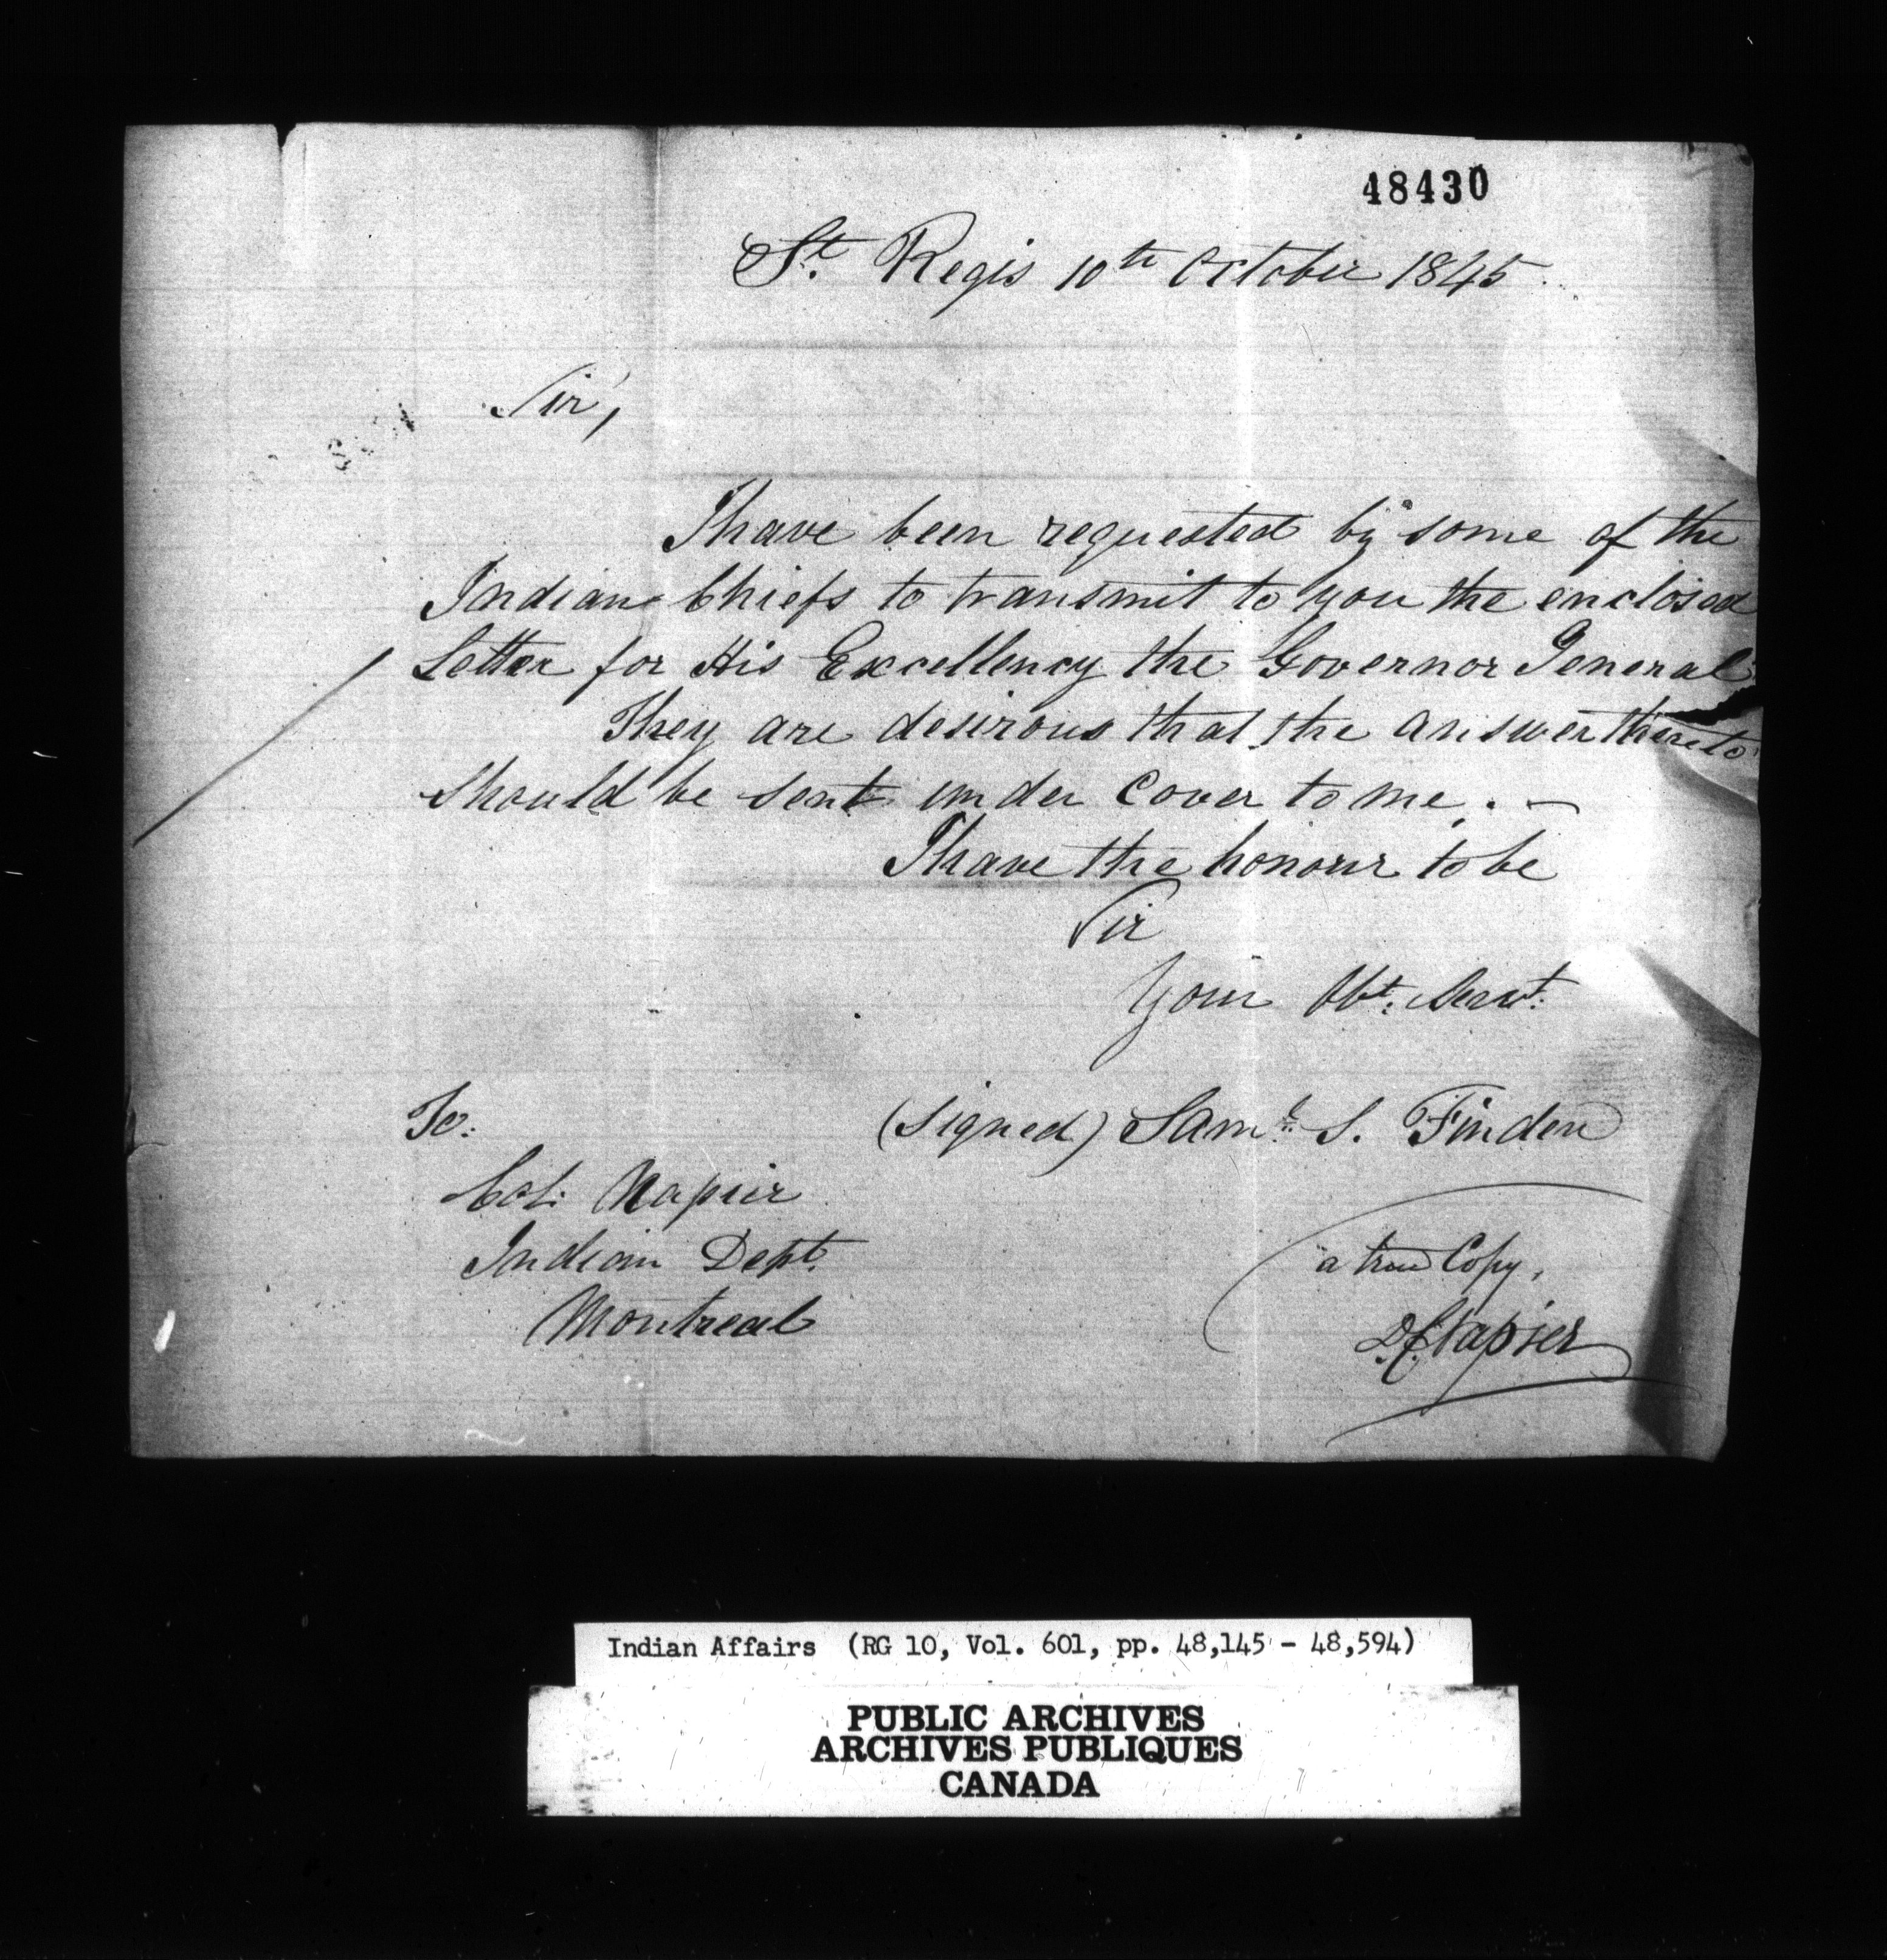 48430
St. Regis 10th October 1845.
Sir,
I have been requested by some of the
Indian Chiefs to transmit to you the enclosed
Letter for His Excellency the Governor General
They are desirous that the answer thereto
should be sent under cover to me. —
I have the honour to be
Sir
Your Obt. Servt.
(signed) Saml. S. Finden
To:
Col: Napier
Indian Dept.
Montreal
a true Copy,
D.C. Napier
Indian Affairs (RG 10, Vol. 601, pp. 48,145 - 48,594)
PUBLIC ARCHIVES
ARCHIVES PUBLIQUES
CANADA